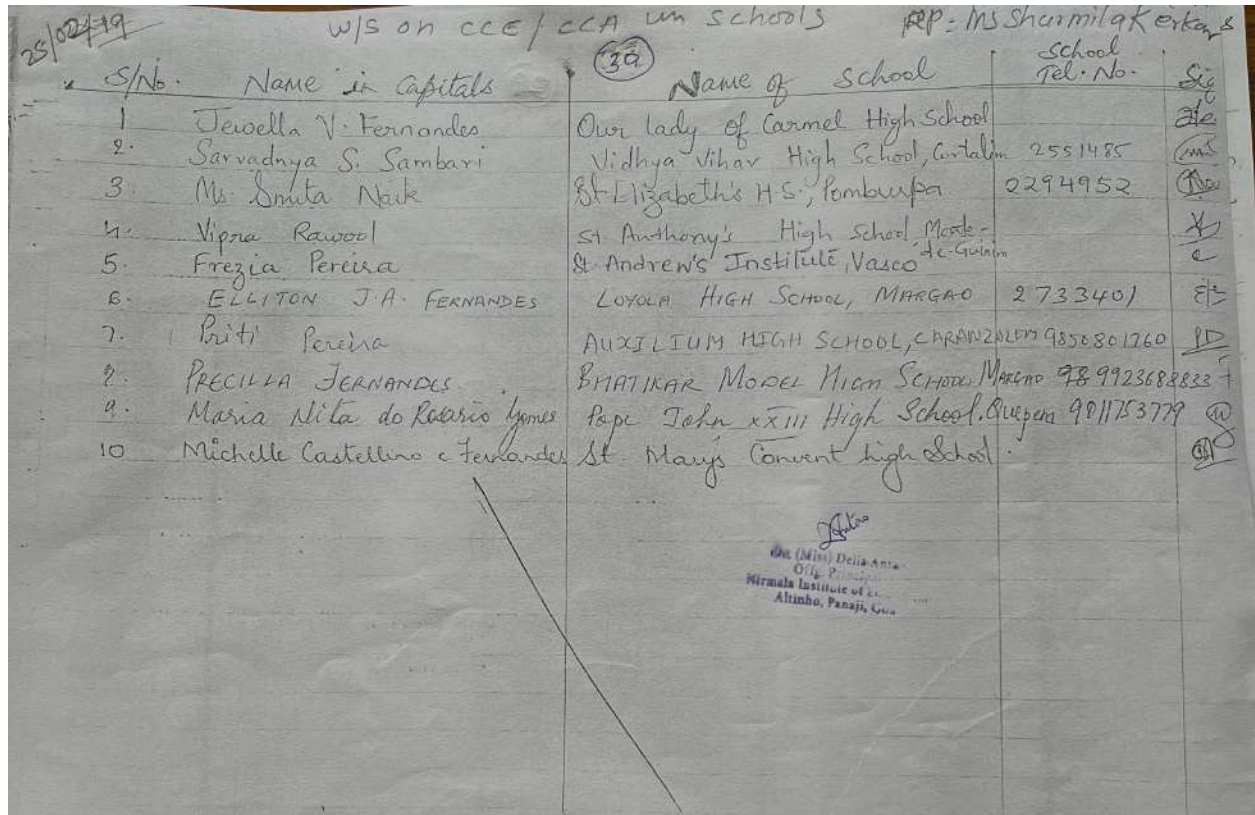 25/02/19 W/S on CCE / CCA in schools RP - Ms Sharmila Kerkar
3a
S/No. Name in Capitals Name of School School Tel. No. Sig
1 Jewella V. Fernandes Our lady of Carmel High School
2. Sarvadnya S. Sambari Vidhya Vihar High School, Cortalim 2551485
3. Ms. Smita Naik St. Elizabeth's H.S., Pomburpa 2294952
4. Vipra Rawool St. Anthony's High School Monte-de-Guirim
5. Frezia Pereira St. Andrew's Institute, Vasco
6. ELLITON J.A. FERNANDES LOYOLA HIGH SCHOOL, MARGAO 2733401
7. Priti Pereira AUXILIUM HIGH SCHOOL, CARANZALEM 9850801260
8. PRECILLA FERNANDES BHATIKAR MODEL HIGH SCHOOL MARGAO 9923688833
9. Maria Nita do Rosario Gomes Pope John XXIII High School. Quepem 9011753779
10 Michelle Castellino e Fernandes St. Mary's Convent high School.
(Miss) Delia
Offg. Principal
Nirmala Institute of
Altinho, Panaji, Goa